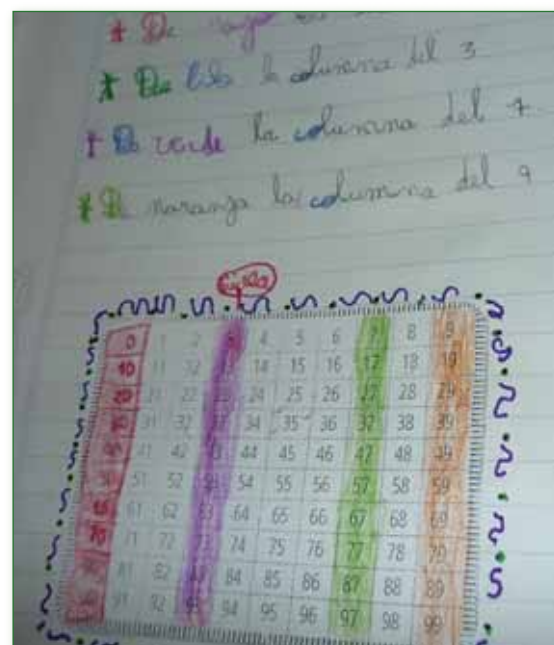 * De
* De lila la columna del 3
* De verde la columna del 7
* De naranja la columna del 9
0 1 2 3 4 5 6 7 8 9
10 11 12 13 14 15 16 17 18 19
20 21 22 23 24 25 26 27 28 29
30 31 32 33 34 35 36 37 38 39
40 41 42 43 44 45 46 47 48 49
50 51 52 53 54 55 56 57 58 59
60 61 62 63 64 65 66 67 68 69
70 71 72 73 74 75 76 77 78 79
80 81 82 83 84 85 86 87 88 89
90 91 92 93 94 95 96 97 98 99